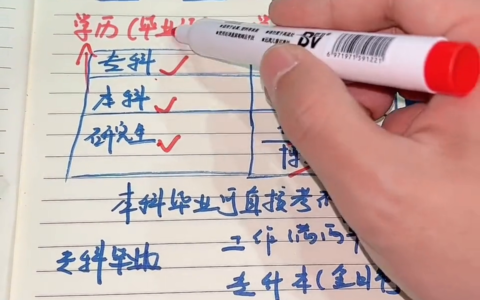 学历(毕业
专科
本科
研究生
本科毕业可直接考
专科毕业 工作满两
专升本(全日制
6971971391221